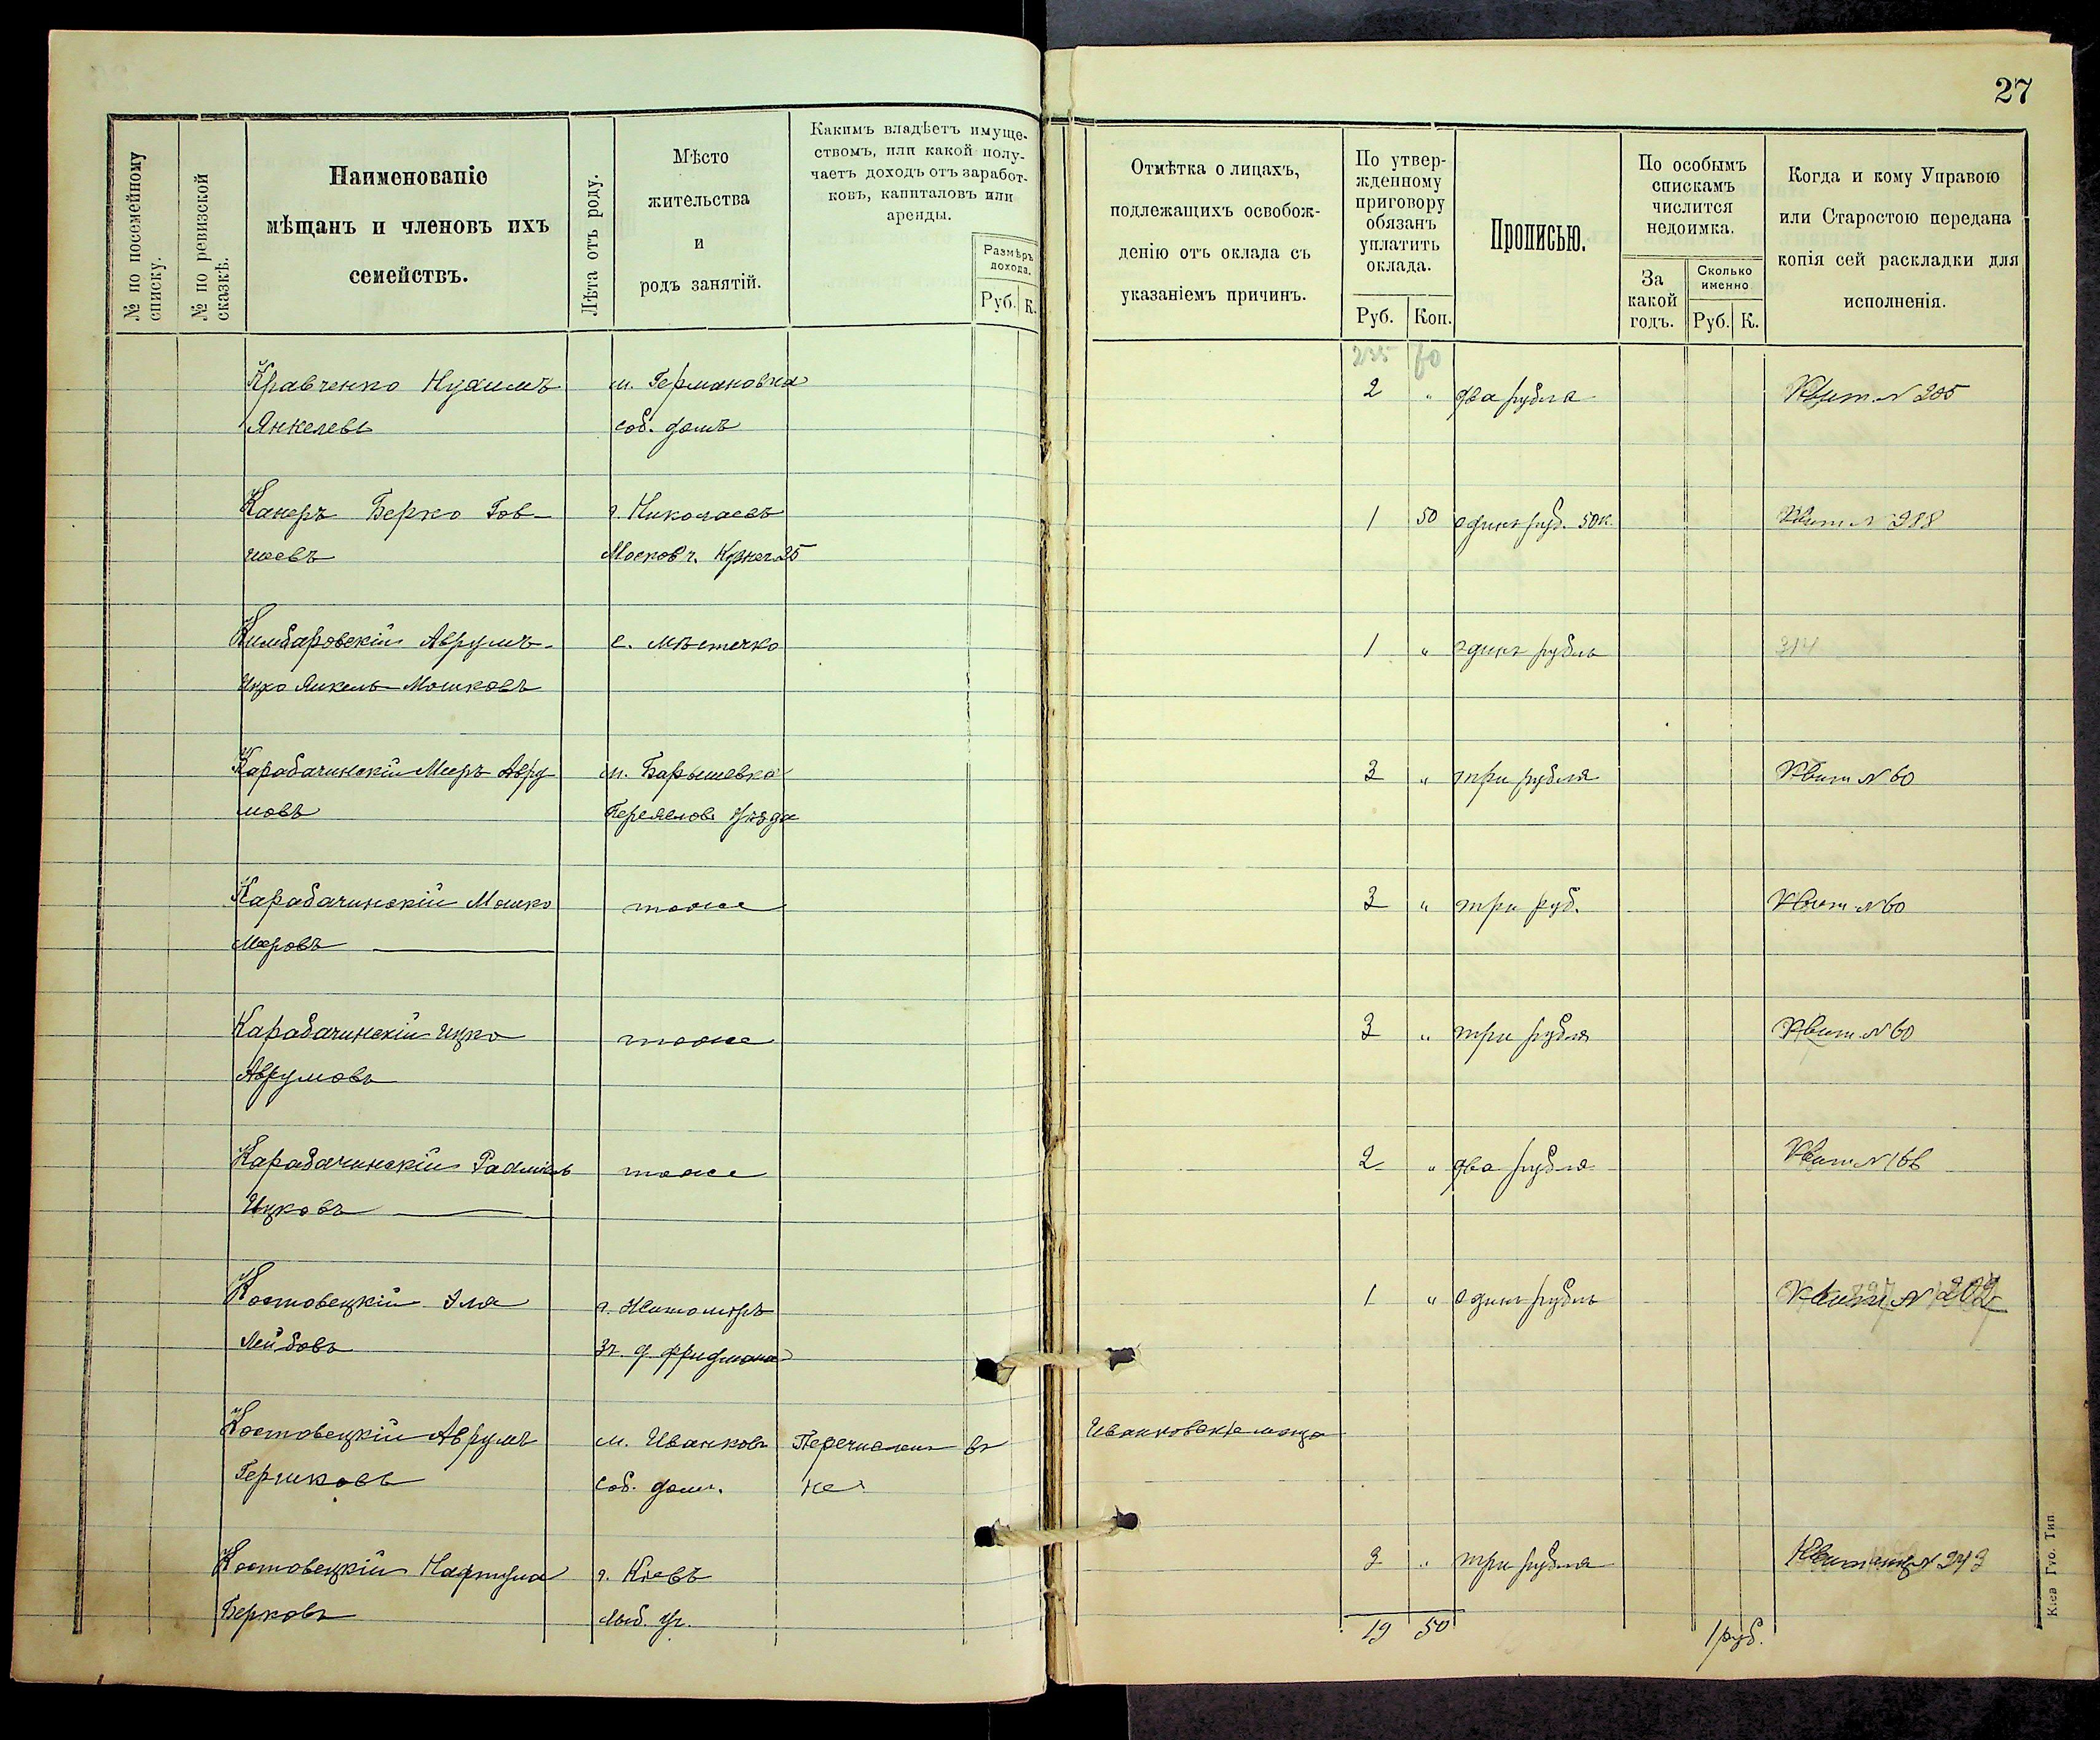 27
№ по посемейному списку.
№ по ревизской сказкѣ.
Наименованіе
мѣщанъ и членовъ ихъ
семействъ.
Лѣта отъ роду.
Мѣсто
жительства
и
родъ занятій.
Какимъ владѣетъ имуще-
ствомъ, или какой полу-
чаетъ доходъ отъ заработ-
ковъ, капиталовъ или
аренды.
Размѣръ
дохода.
Руб. К.
Отмѣтка о лицахъ,
подлежащихъ освобож-
денію отъ оклада съ
указаніемъ причинъ.
По утвер-
жденному
приговору
обязанъ
уплатить
оклада.
Руб. Коп.
Прописью.
По особымъ
спискамъ
числится
недоимка.
За
какой
годъ.
Сколько
именно
Руб. К.
Когда и кому Управою
или Старостою передана
копія сей раскладки для
исполненія.
235 60
Кравченко Нухимъ м. Германовка 2 " два рубля Квит. N 205
Янкелевъ соб. домъ
Канеръ Берко Гов- г. Николаевъ 1 50 одинъ руб. 50 к. Квит N 288
шеевъ Москов ч. Кузнеч 25
Кимбаровскій Аврумъ- с. Мѣстечко 1 " одинъ рубль 314
Ицко Янкель Мошковъ
Карабачинскій Мееръ Авру м. Барышевка 3 " три рубля Квит N 60
мовъ Переяслов. уѣзда
Карабачинскій Мошко тоже 3 " три руб. Квит N 60
Меровъ
Карабачинскій Ицко тоже 3 " три рубля Квит. N 60
Аврумовъ
Карабачинскій Рахмиль тоже 2 " два рубля Квит N 166
Ицковъ
Костовецкій Эля г. Житомиръ 1 " одинъ рубль Квит N 202
Лейбовъ 3 ч. д. Фридмана
Костовецкій Аврумъ м. Иванковъ Перечисленъ въ Иванковскіе мѣща
Гершковъ соб. домъ. не
Костовецкій Нафтула г. Кіевъ 3 " три рубля Квитанц N 243
Берковъ Лыб. уч.
19 50 1 руб.
Кіев Губ. Тип